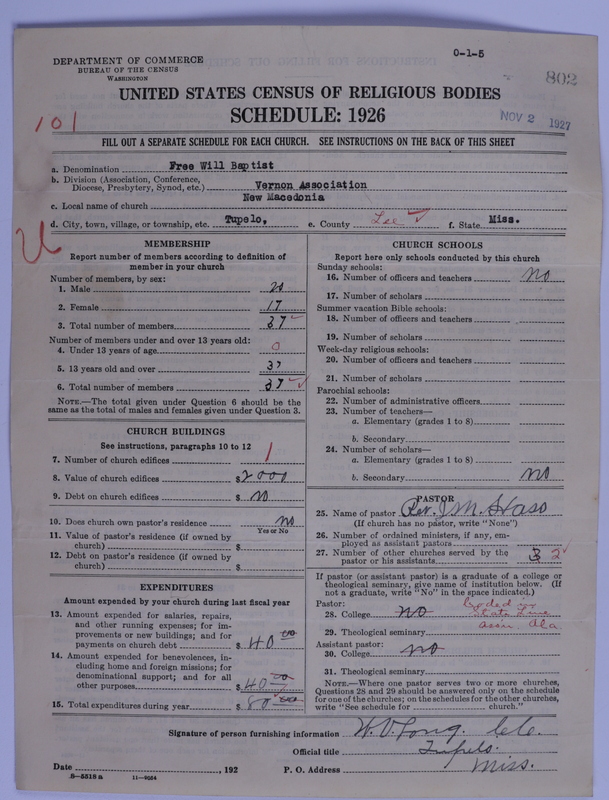 0-1-5
DEPARTMENT OF COMMERCE
BUREAU OF THE CENSUS
WASHINGTON
802
UNITED STATES CENSUS OF RELIGIOUS BODIES
SCHEDULE: 1926
NOV 2 1927
101
FILL OUT A SEPARATE SCHEDULE FOR EACH CHURCH. SEE INSTRUCTIONS ON THE BACK OF THIS SHEET
a. Denomination Free Will Baptist
b. Division (Association, Conference,
Diocese, Presbytery, Synod, etc.) Vernon Association
c. Local name of church New Macedonia
d. City, town, village, or township, etc. Tupelo, e. County Lee f. State Miss.
U
MEMBERSHIP
Report number of members according to definition of
member in your church
Number of members, by sex:
1. Male 20
2. Female 17
3. Total number of members 37
Number of members under and over 13 years old:
4. Under 13 years of age 0
5. 13 years old and over 37
6. Total number of members 37
NOTE.—The total given under Question 6 should be the
same as the total of males and females given under Question 3.
CHURCH BUILDINGS
See instructions, paragraphs 10 to 12
7. Number of church edifices 1
8. Value of church edifices $2000
9. Debt on church edifices $ no
10. Does church own pastor's residence no
Yes or No
11. Value of pastor's residence (if owned by
church) $
12. Debt on pastor's residence (if owned by
church) $
EXPENDITURES
Amount expended by your church during last fiscal year
13. Amount expended for salaries, repairs,
and other running expenses; for im-
provements or new buildings; and for
payments on church debt $ 40 00
14. Amount expended for benevolences, in-
cluding home and foreign missions; for
denominational support; and for all
other purposes $ 40 00
15. Total expenditures during year $ 80 00
CHURCH SCHOOLS
Report here only schools conducted by this church
Sunday schools:
16. Number of officers and teachers no
17. Number of scholars
Summer vacation Bible schools:
18. Number of officers and teachers
19. Number of scholars
Week-day religious schools:
20. Number of officers and teachers
21. Number of scholars
Parochial schools:
22. Number of administrative officers
23. Number of teachers—
a. Elementary (grades 1 to 8)
b. Secondary
24. Number of scholars—
a. Elementary (grades 1 to 8)
b. Secondary no
PASTOR
25. Name of pastor Rev. J M.
(If church has no pastor, write "None")
26. Number of ordained ministers, if any, em-
ployed as assistant pastors
27. Number of other churches served by the
pastor or his assistants 3 2
If pastor (or assistant pastor) is a graduate of a college or
theological seminary, give name of institution below. (If
not a graduate, write "No" in the space indicated.)
Pastor: Coded in
28. College no State Line
29. Theological seminary assn. Ala.
Assistant pastor:
30. College no
31. Theological seminary
NOTE.—Where one pastor serves two or more churches,
Questions 28 and 29 should be answered only on the schedule
for one of the churches; on the schedules for the other churches,
write "See schedule for church."
Signature of person furnishing information W. V. Long,
Official title Tupelo.
Date , 192 P. O. Address Miss.
8-5518 a 11-9564